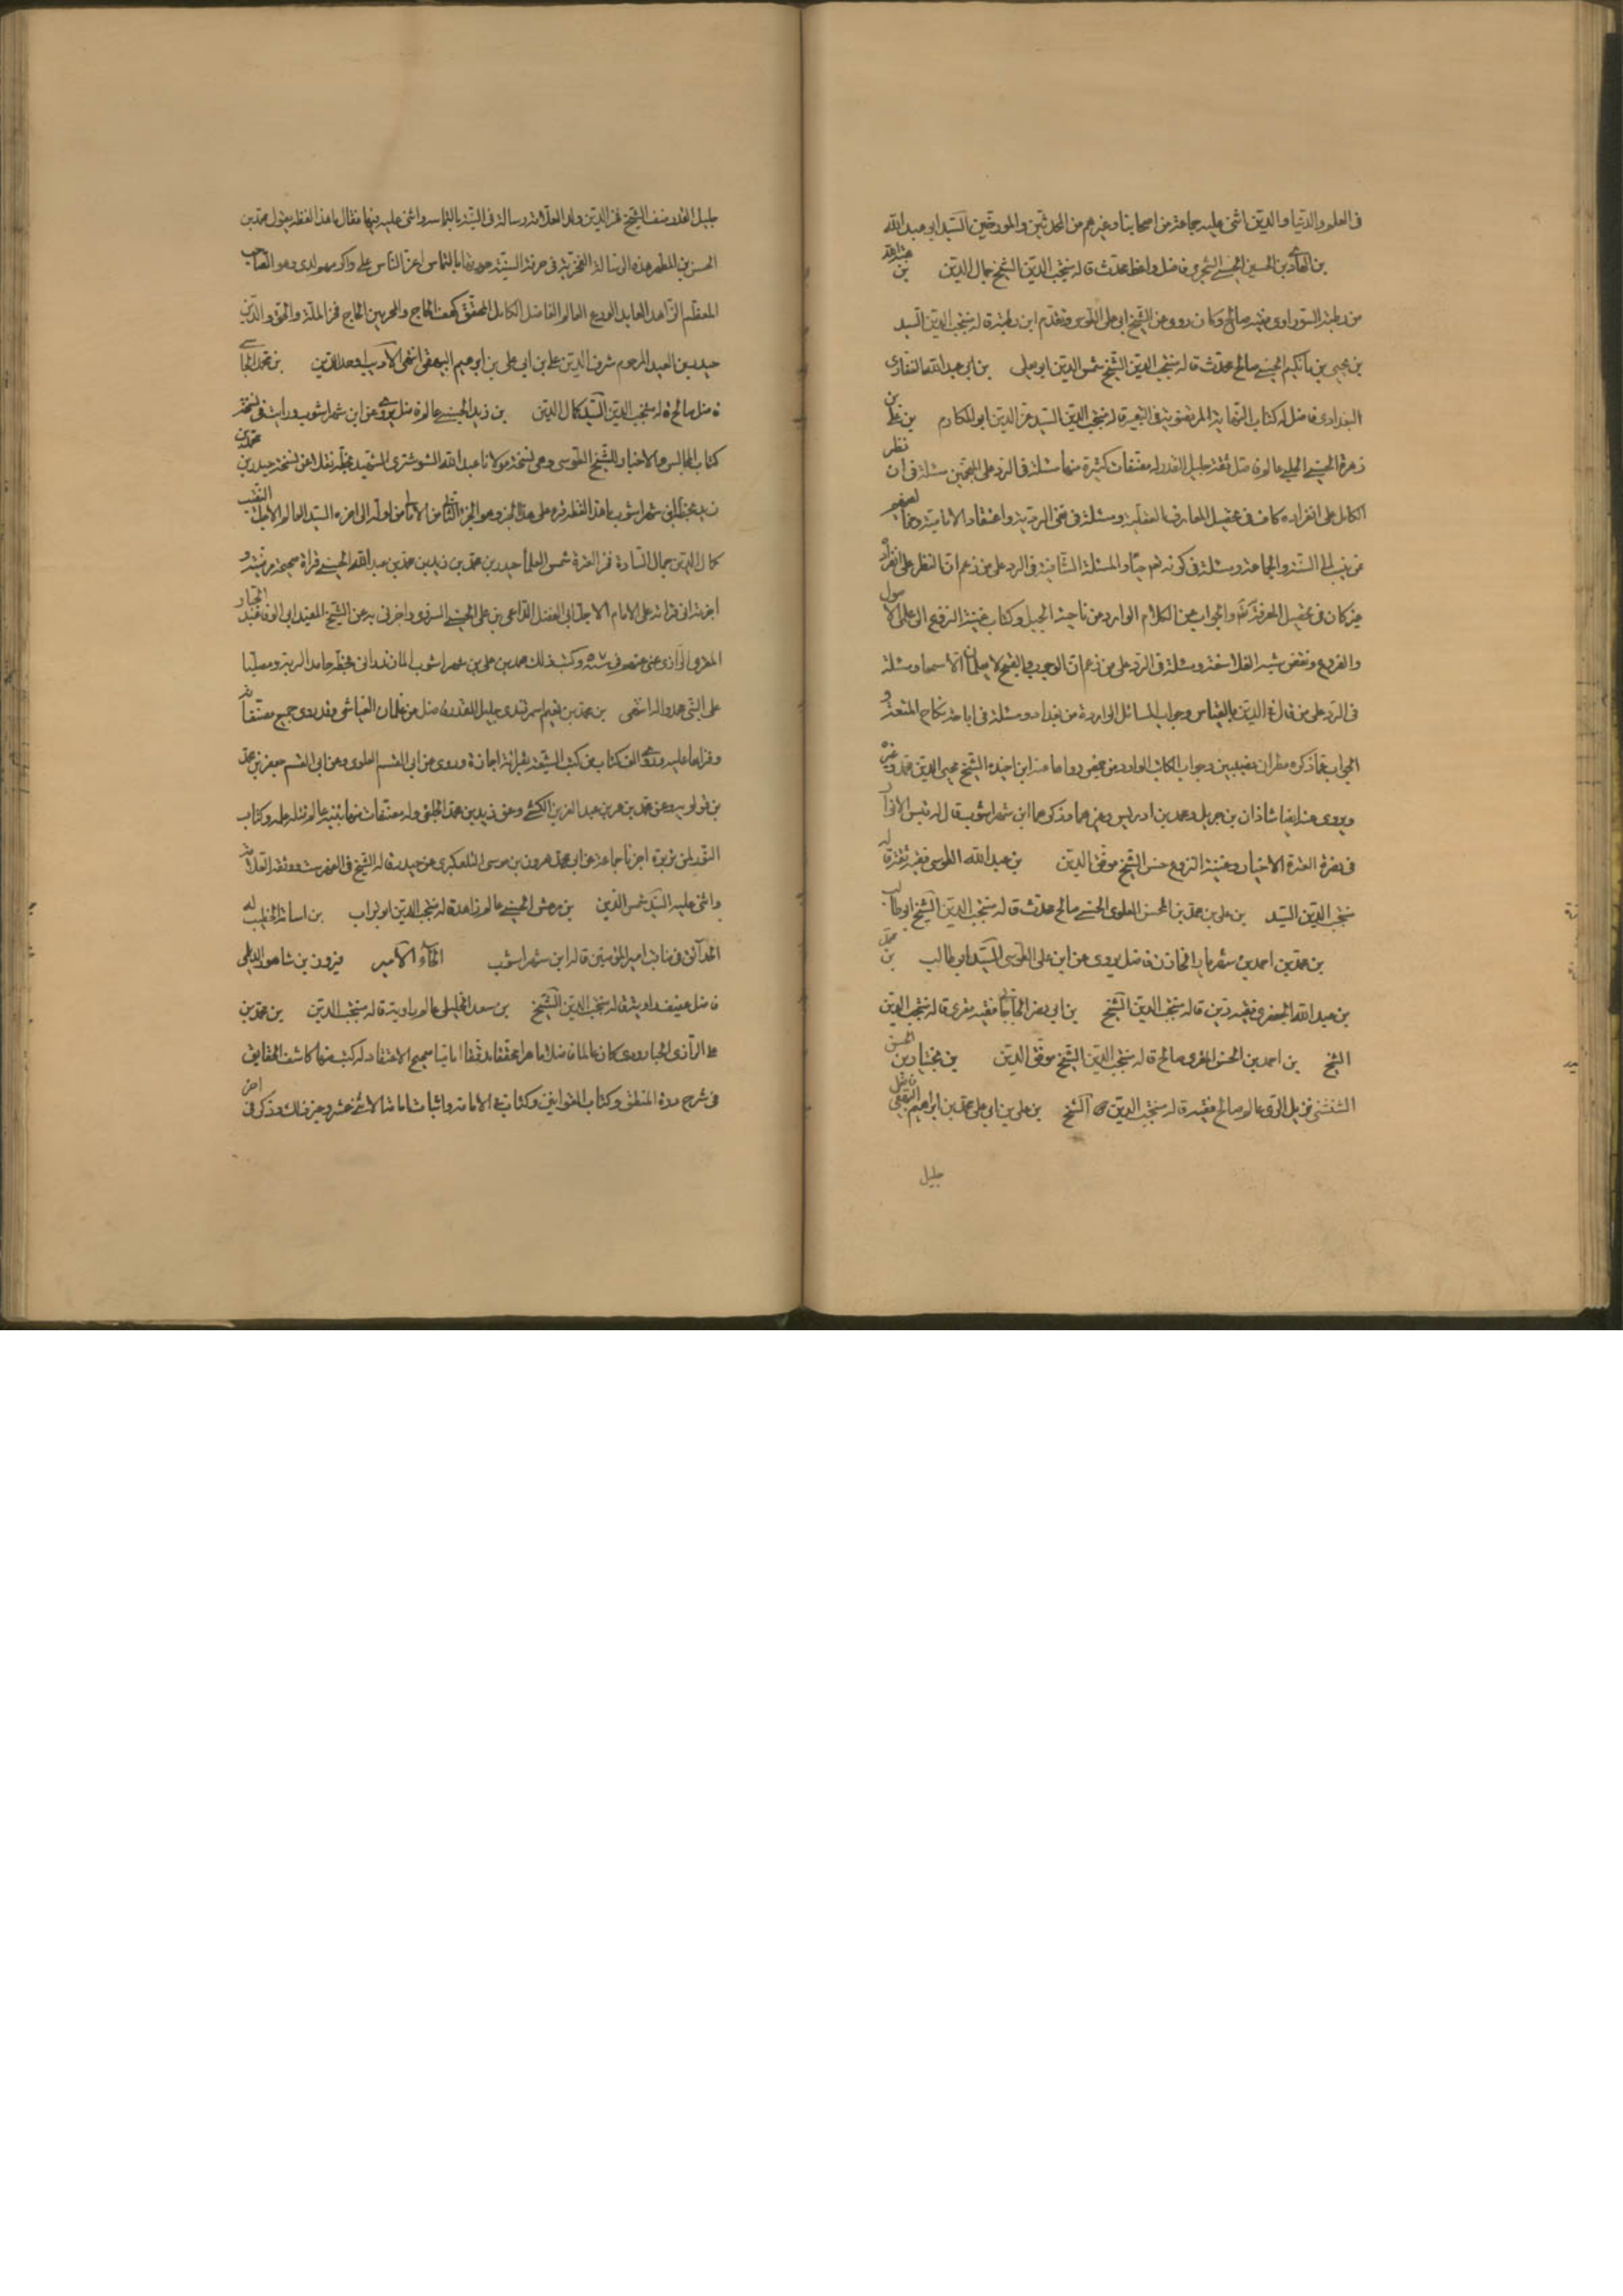 فى العلم والدنيا والدين اثنى عليه جماعة من اصحابنا وغيرهم من المحدثين والمورخين السيد ابو عبد الله
بن الهادى بن الحسين الحسنى الشجرى فاضل واعظ محدث قاله منتجب الدين الشيخ جمال الدين بن
من رطبة السوراوى فقيه صالح وكان روى عن الشيخ ابى على الطوسى وتقدم ابن رطبة قاله منتجب الدين السيد
بن يحيى بن مانكيم الحسنى صالح محدث قاله منتجب الدين الشيخ شمس الدين ابو يعلى بن ابى عبد الله
البغدادى فاضل له كتاب قاله منتجب الدين السيد عز الدين ابو المكارم بن على بن
زهرة الحسينى الحلبى عالم فاضل ثقة جليل القدر له مصنفات كثيرة منها مسئلة فى الرد على المنجمين مسئلة فى ان نظر
الكامل على انفراده كاف فى تحصيل المعارف العقلية ومسئلة فى نفى الروية واعتقاد الامامية ومخالفيهم
ممن ينسب الى السنة والجماعة ومسئلة فى كونه تعم حيا والمسئلة الشافية فى الرد على من زعم ان النظر على انفراده
غير كاف فى تحصيل المعرفة به تعم والجواب عن الكلام الوارد من ناحية الجبل وكتاب غنية النزوع الى على الاصول
والفروع ونقض شبه الفلاسفة ومسئلة فى الرد على من زعم ان الوجوب والقبح لا يعلمان الا سمعا ومسئلة
فى الرد على من قال فى الدين بالقياس وجواب المسائل الواردة من بغداد ومسئلة فى اباحة نكاح المتعة و
الجواب عما ذكره مطران نصيبين وجواب الكتاب الوارد من حمص رواها عنه ابن اخيه الشيخ محيى الدين محمد وغيره
ويروى عنه ايضا شاذان بن جبريل ومحمد بن ادريس وغيرهما وذكرهما ابن شهراشوب فقال له قبس الانوار
فى نصرة العترة الاخيار وغنية النزوع حسن الشيخ موفق الدين بن عبد الله الطوسى فقيه ثقة قاله
منتجب الدين السيد بن على بن محمد بن المحسن العلوى الحسنى صالح محدث قاله منتجب الدين الشيخ ابو طالب
بن محمد بن احمد بن شهريار الخازن فاضل يروى عن ابن على الطوسى السيد ابو طالب بن محمد
بن عبد الله الجعفرى فقيه دين قاله منتجب الدين الشيخ بن ابى فقيه مقرى قاله منتجب الدين
الشيخ بن احمد بن الحسن المقرى صالح قاله منتجب الدين الشيخ موفق الدين بن بختيار بن الحسن
الشنشنى نزيل الرى عالم صالح فقيه قاله منتجب الدين الشيخ بن على بن ابى على محمد بن ابراهيم البيهقى فاضل
جليل
جليل القدر صنف الشيخ فخر الدين ولد العلامة رسالة فى النية بالتماسه واثنى عليه فيها فقال ما هذا لفظه يقول محمد بن
الحسن بن المطهر هذه الرسالة الفخرية فى معرفة النية حررتها بالتماس اعز الناس على واكرمهم لدى وهو الصاحب
المعظم الزاهد العابد الورع العالم الفاضل الكامل المحقق كهف الحاج والحرمين الحاج فخر الملة والحق والدين
حيدر بن السعيد المرحوم شرف الدين على بن ابى على بن ابراهيم البيهقى انتهى الاديب اوحد الدين بن محمد
فاضل صالح قاله منتجب الدين السيد كمال الدين بن زيد الحسينى عالم فاضل يروى عن ابن شهراشوب ورايت فى نسخة
كتاب المجالس والاخبار للشيخ الطوسى وهى نسخة مولانا عبد الله الشوشترى الشهيد بخطه نقلا عن نسخة حيدر بن محمد بن
زيد بخط ابن شهراشوب ما هذا لفظه قرء على هذا الجزء وهو الجزء الثانى من الامالى من اوله الى اخره السيد العالم الاجل النقيب
كمال الدين جمال السادة فخر العترة شمس العلماء حيدر بن محمد بن زيد بن محمد بن عبد الله الحسينى قراءة صحيحة مرضية و
اخبرته انى قراته على الامام الاجل ابى الفضل الداعى بن على الحسينى السروى واخبرنى به عن الشيخ المفيد ابى الوفا عبد الجبار
المقرى الرازى عن وكتب ذلك محمد بن على بن شهراشوب المازندرانى بخطه حامدا لربه ومصليا
على النبى محمد واله انتهى بن محمد بن نعيم السمرقندى جليل القدر فاضل من غلمان العياشى وقد روى جميع مصنفاته
وقراها عليه وروى الف كتاب من كتب الشيعة بقراءة واجازة وروى عن ابى القسم العلوى وعن ابى القسم جعفر بن محمد
بن قولويه وعن محمد بن عمر بن عبد العزيز الكشى وعن زيد بن محمد الحلقى وله مصنفات منها تنبيه عالم قتله علمه وكتاب
النور لمن تدبره اخبرنا جماعة عن ابى محمد هرون بن موسى التلعكبرى عن حيدر قاله الشيخ فى الفهرست ووثقه العلامة
واثنى عليه السيد شمس الدين بن مرعش الحسينى عالم زاهد قاله منتجب الدين ابو تراب بن اسامة الخطيب له
الحدائق فى مناقب امير المومنين قاله ابن شهراشوب الخاء الامير فيرون بن شاهور الديلمى
فاضل قاله منتجب الدين الشيخ بن سعد الخليلى عالم قاله منتجب الدين بن محمد بن
على الرازى الحبلرودى كان عالما فاضلا ماهرا محققا مدققا اماميا صحيح الاعتقاد له كتب منها كاشف الحقايق
فى شرح درة المنطق وكتاب القوانين وكتاب فى الامامة واثبات امامة الائمة اثنى عشر وغير ذلك وذكر فى اخر